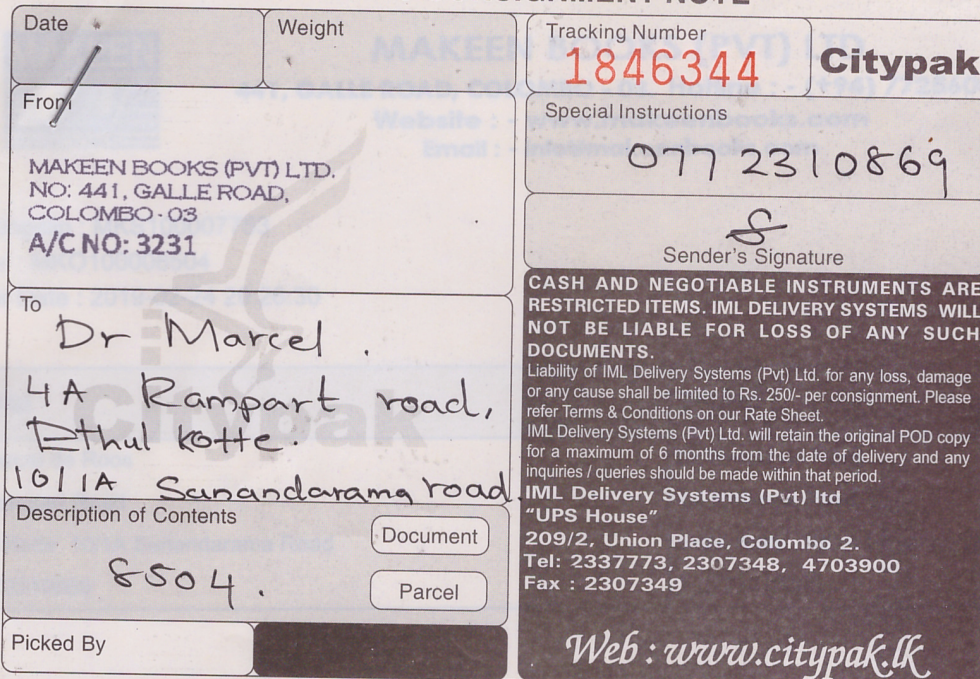 Date
Weight
From
MAKEEN BOOKS (PVT) LTD.
NO: 441, GALLE ROAD,
COLOMBO - 03
A/C NO: 3231
To
Dr Marcel.
4A Rampart road,
Ethul kotte
101 1A Sanandarama road.
Description of Contents
8504.
Document
Parcel
Picked By
Tracking Number
1846344
Citypak
Special Instructions
077 2310869
Sender's Signature
CASH AND NEGOTIABLE INSTRUMENTS ARE
RESTRICTED ITEMS. IML DELIVERY SYSTEMS WILL
NOT BE LIABLE FOR LOSS OF ANY SUCH
DOCUMENTS.
Liability of IML Delivery Systems (Pvt) Ltd. for any loss, damage
or any cause shall be limited to Rs. 250/- per consignment. Please
refer Terms & Conditions on our Rate Sheet.
IML Delivery Systems (Pvt) Ltd. will retain the original POD copy
for a maximum of 6 months from the date of delivery and any
inquiries / queries should be made within that period.
IML Delivery Systems (Pvt) ltd
"UPS House"
209/2, Union Place, Colombo 2.
Tel: 2337773, 2307348, 4703900
Fax : 2307349
Web : www.citypak.lk
Citypak